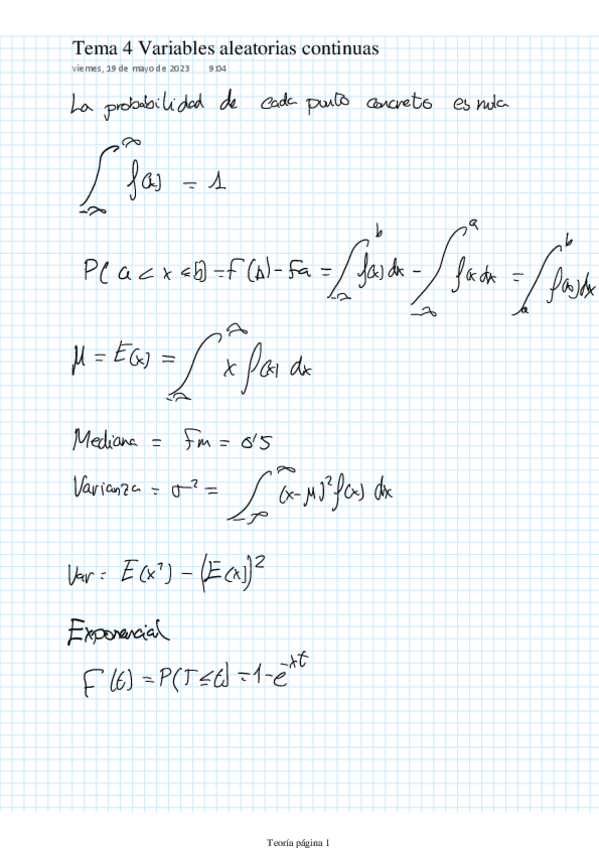 Tema 4 Variables aleatorias continuas
viernes, 19 de mayo de 2023 9:04
La probabilidad de cada punto concreto es nula
∫_{-∞}^{∞} f(x) = 1
P( a < x ≤ b) = F(b) - Fa = ∫_{-∞}^{b} f(x) dx - ∫_{-∞}^{a} f(x dx = ∫_{a}^{b} f(x) dx
μ = E(x) = ∫_{-∞}^{∞} x f(x) dx
Mediana = Fm = 0'5
Varianza = σ² = ∫_{-∞}^{∞} (x-μ)² f(x) dx
Var = E(x²) - (E(x))²
Exponencial
F(t) = P(T ≤ t) = 1 - e^{-λt}
Teoría página 1